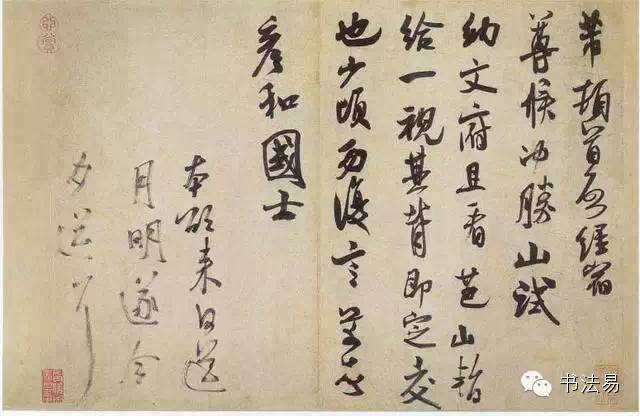 芾頓首啓經宿
尊候冲勝山試
納文府且看芭山暫
給一視其背即定交
也少頃勿復言芾頓首
彥和國士
本欲来日送
月明遂今
夕送耳
书法易